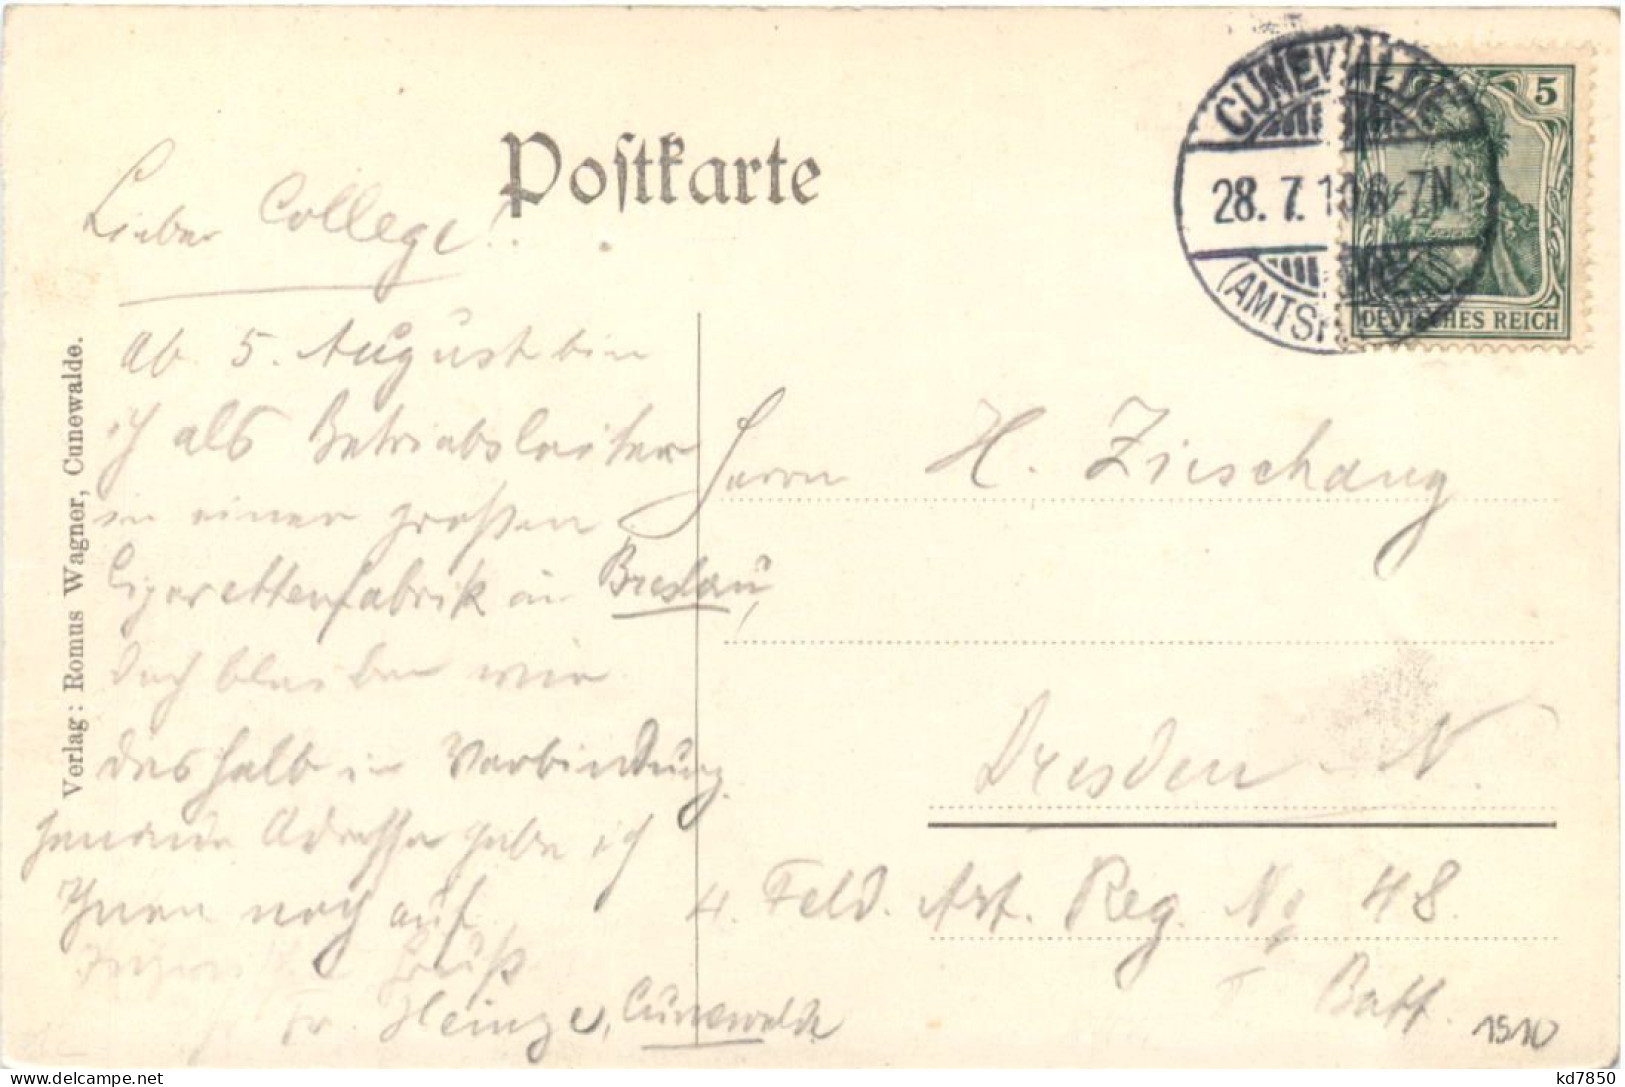 Postkarte
CUNEWALDE
28. 7. 10 6-7N.
(AMTSH.
5
DEUTSCHES REICH
Verlag: Romus Wagner, Cunewalde.
Lieber College!
Ab 5. August bin
ich als Betriebsleiter
in einer großen
Cigarettenfabrik in Breslau,
doch bleiben wir
deshalb in Verbindung.
genaue Adresse gebe ich
Ihnen noch auf.
Gruß
Fr. Heinze, Cunewalde
Herrn H. Zieschang
Dresden N.
4. Feld. Art. Reg. No 48.
I Batt.
1910
kd7850